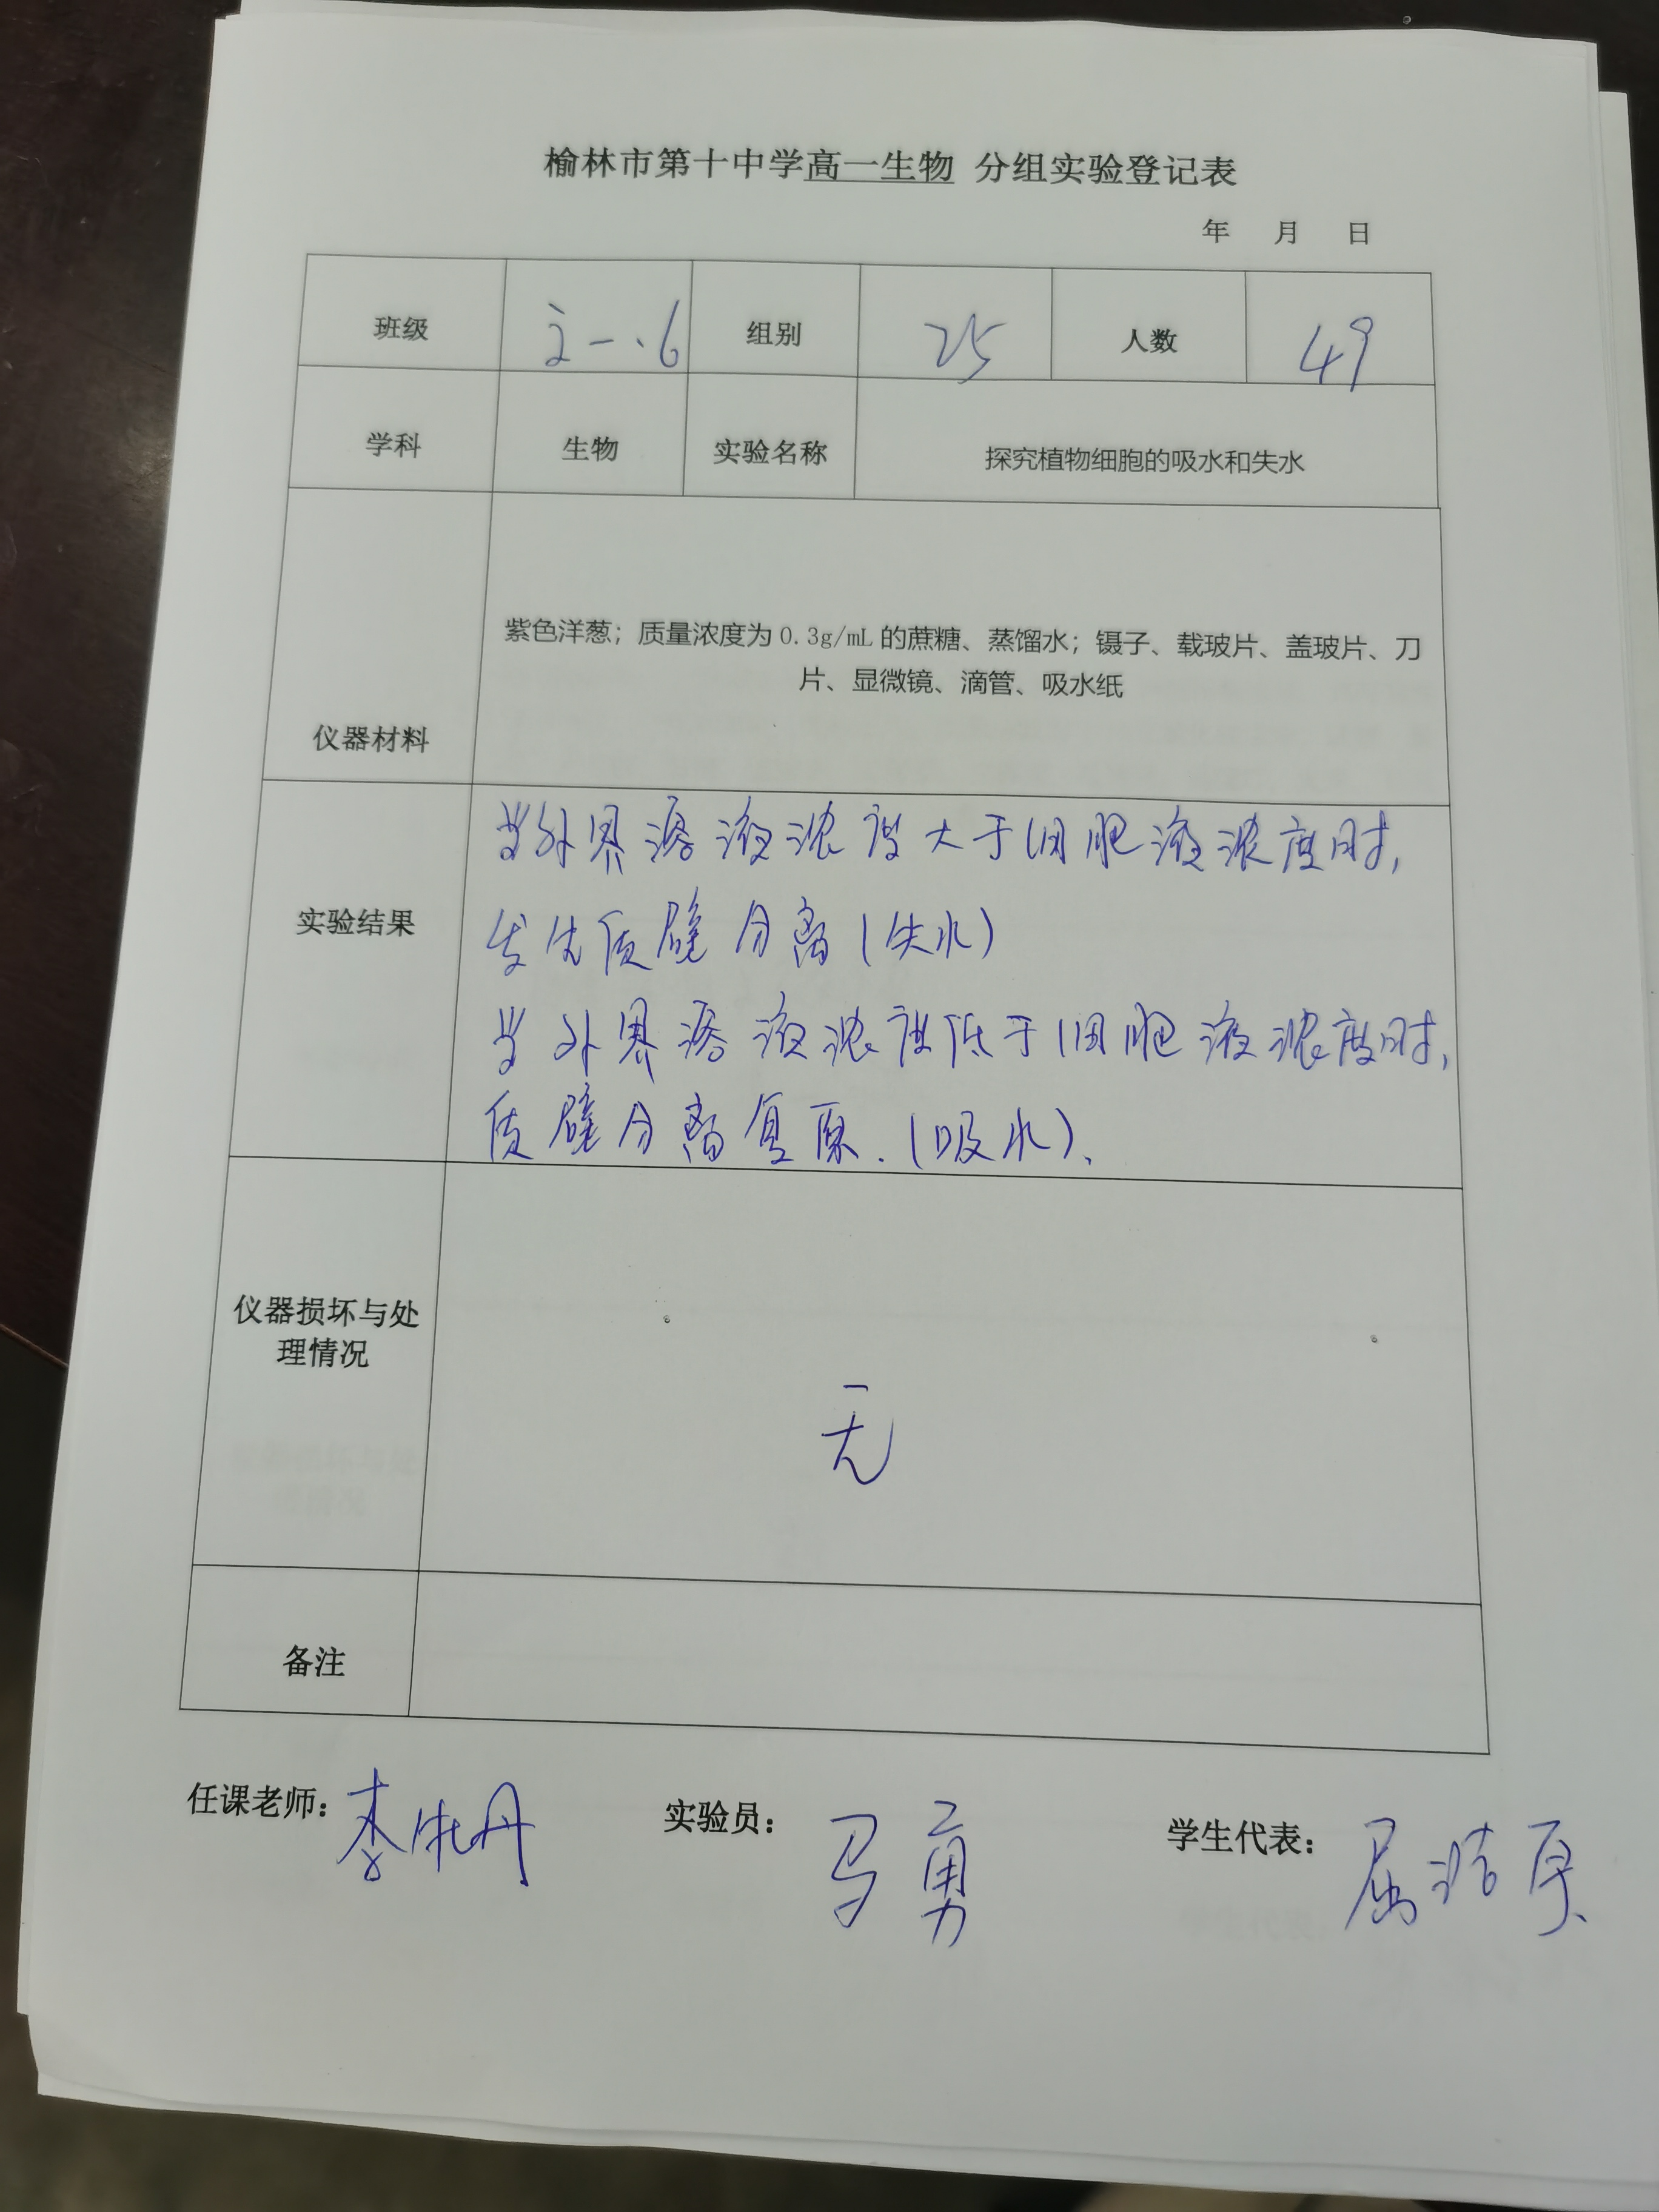 榆林市第十中学高一生物 分组实验登记表
年 月 日
班级 高一.6 组别 25 人数 49
学科 生物 实验名称 探究植物细胞的吸水和失水
紫色洋葱；质量浓度为 0.3g/mL 的蔗糖、蒸馏水；镊子、载玻片、盖玻片、刀
片、显微镜、滴管、吸水纸
仪器材料
当外界溶液浓度大于细胞液浓度时,
实验结果
发生质壁分离(失水)
当外界溶液浓度低于细胞液浓度时,
质壁分离复原.(吸水)、
仪器损坏与处
理情况
无
备注
任课老师: 李牡丹 实验员: 马勇 学生代表: 屈浩